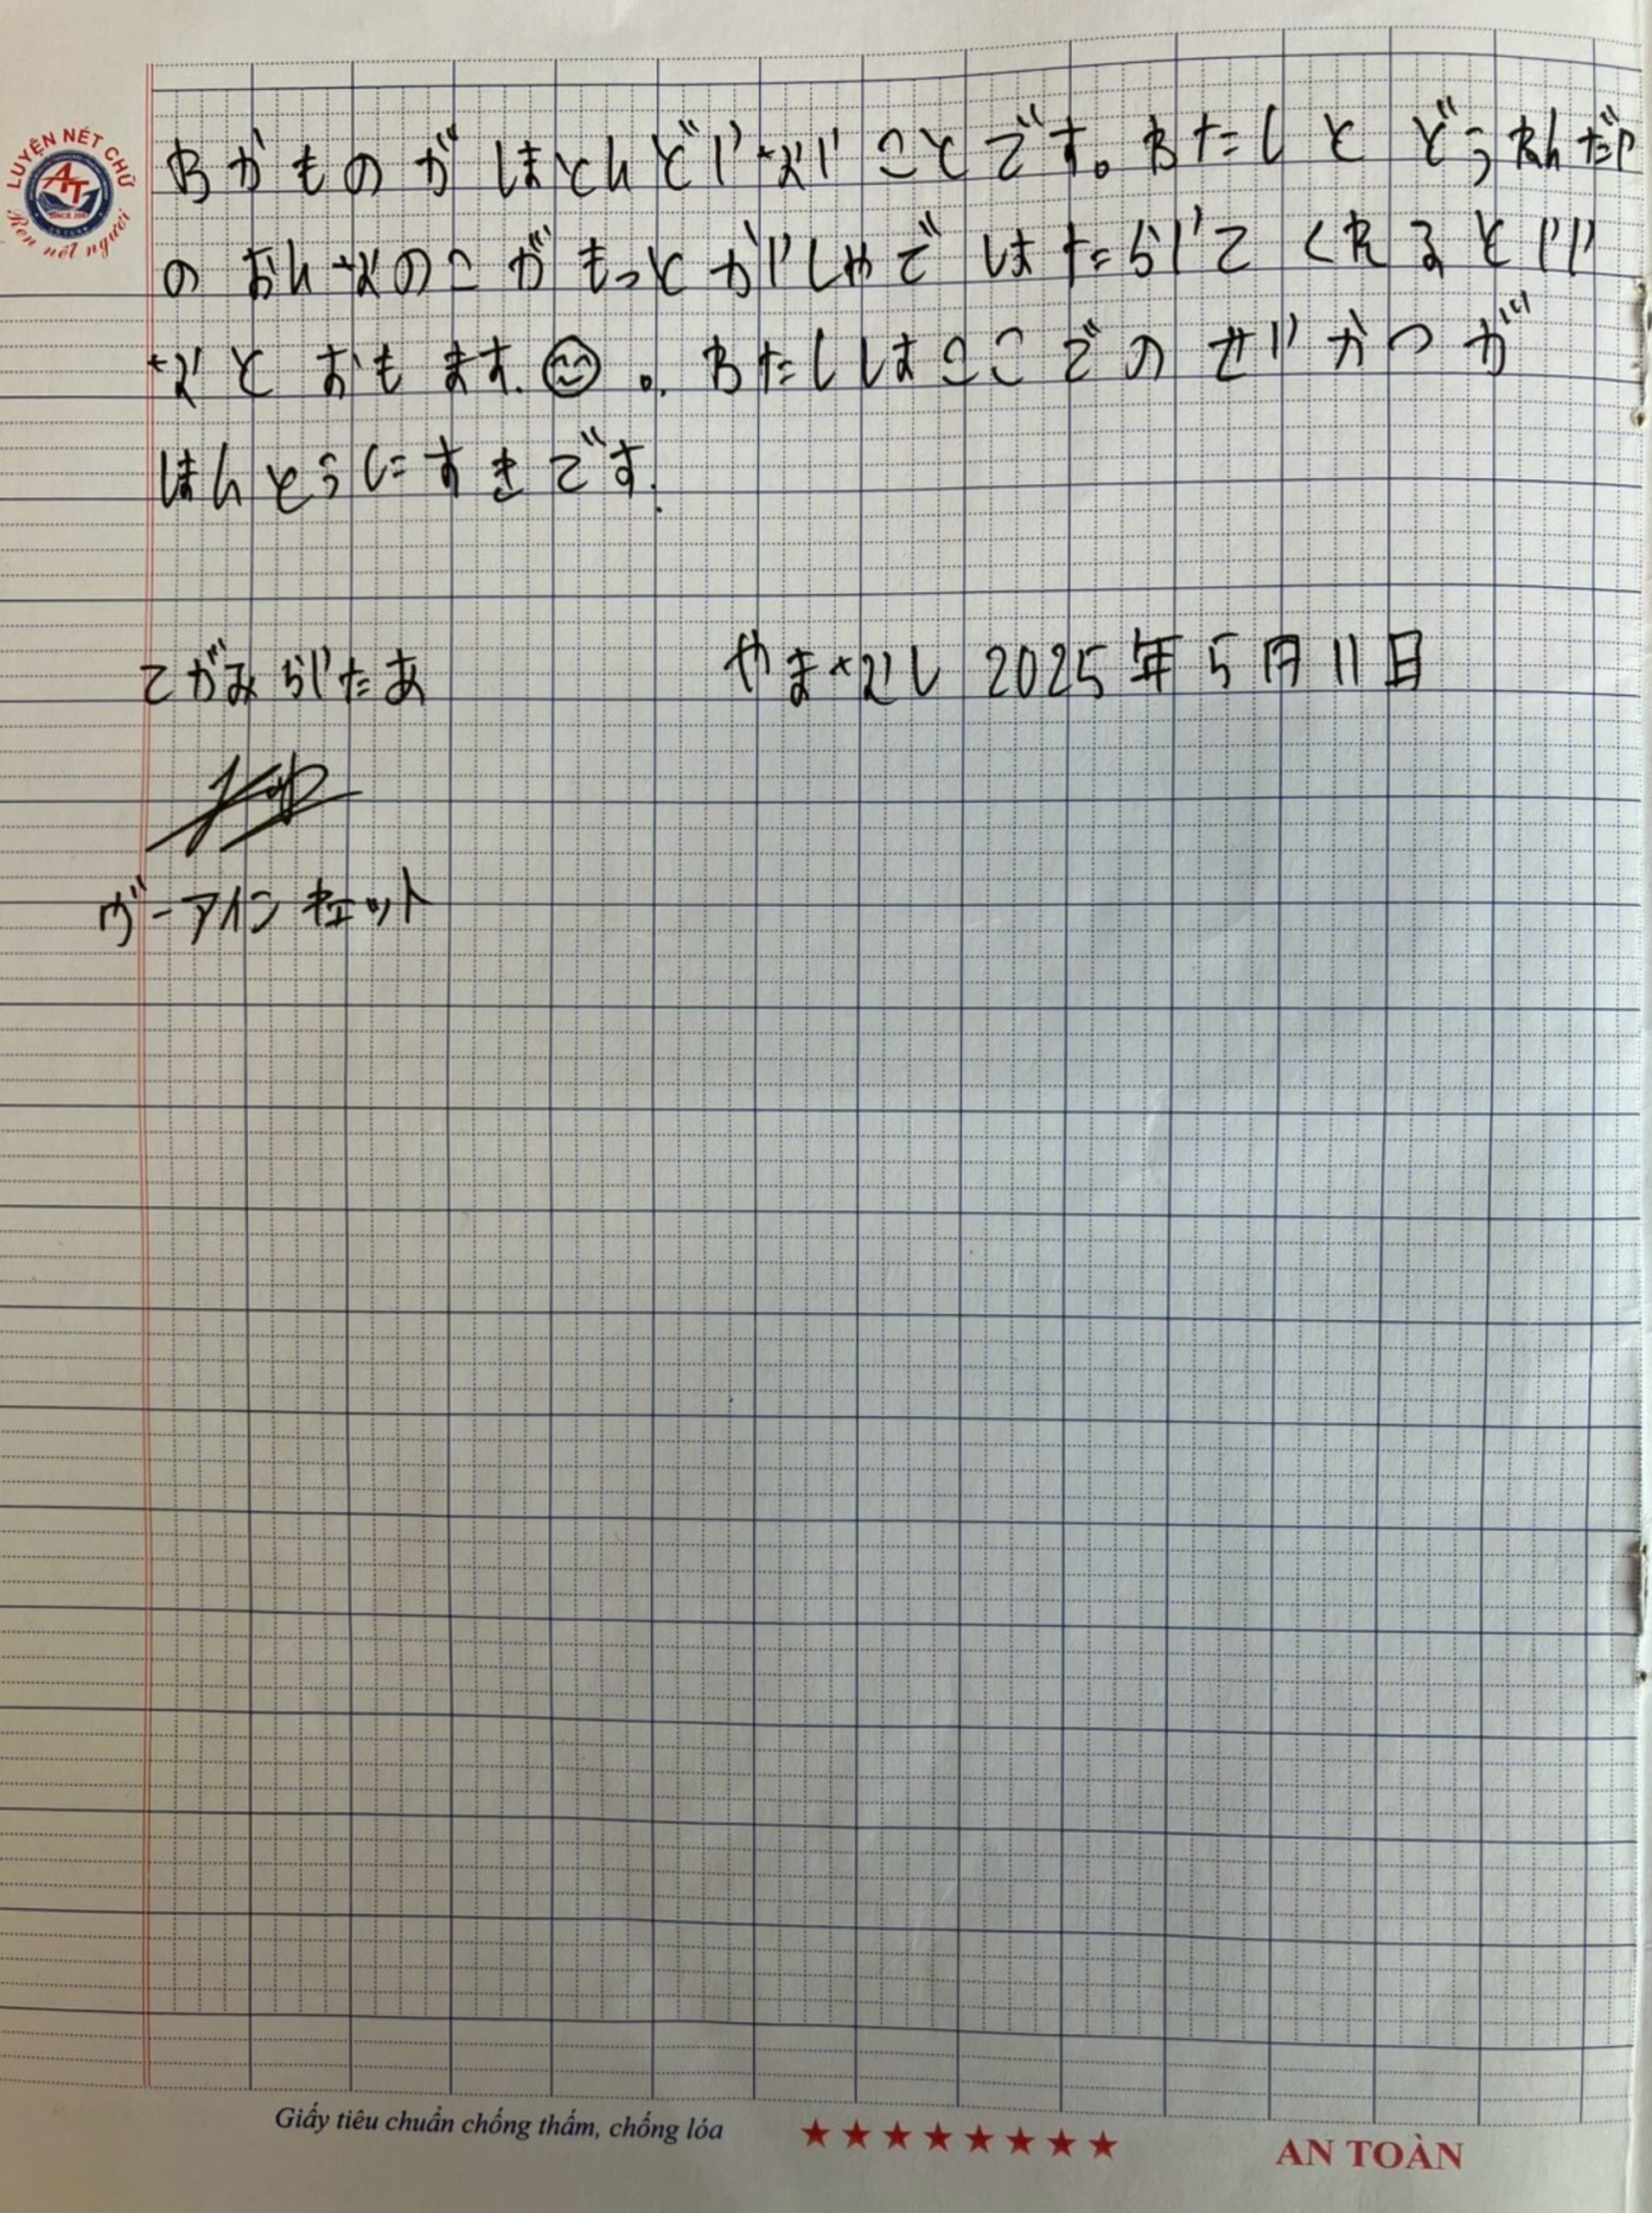 LUYỆN NÉT CHỮ
AT
SINCE 2007
Rèn nết người
わかものがほとんどいないことです。わたしとどうねんだい
のおんなのこがもっとかいしゃではたらいてくれるといい
なとおもます.。わたしはここでのせいかつが
ほんとうにすきです.
てがみらいたあ やまなし 2025年5月11日
ヴーアインキェット
Giấy tiêu chuẩn chống thấm, chống lóa ★★★★★★★★ AN TOÀN